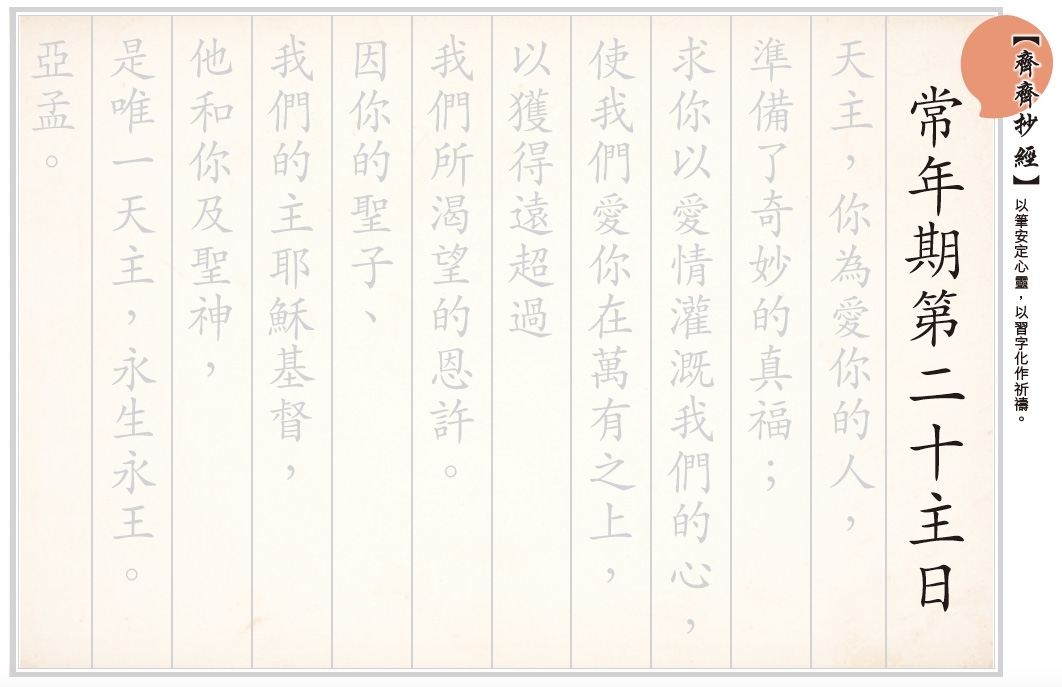 【齊齊抄經】以筆安定心靈，以習字化作祈禱。
常年期第二十主日
天主，你為愛你的人，
準備了奇妙的真福；
求你以愛情灌溉我們的心，
使我們愛你在萬有之上，
以獲得遠超過
我們所渴望的恩許。
因你的聖子、
我們的主耶穌基督，
他和你及聖神，
是唯一天主，永生永王。
亞孟。